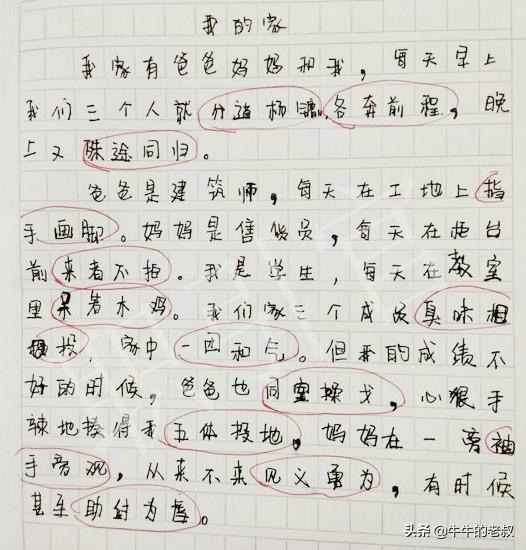 我的家
我家有爸爸妈妈和我，每天早上
我们三个人就分道杨镳，各奔前程，晚
上又殊途同归。
爸爸是建筑师，每天在工地上指
手画脚。妈妈是售货员，每天在柜台
前来者不拒。我是学生，每天在教室
里呆若木鸡。我们家三个成员臭味相
投，家中一团和气。但我的成绩不
好的时候，爸爸也同室操戈，心狠手
辣地揍得我五体投地，妈妈在一旁袖
手旁观，从来不来见义勇为，有时候
甚至助纣为虐。
头条 @牛牛的老叔